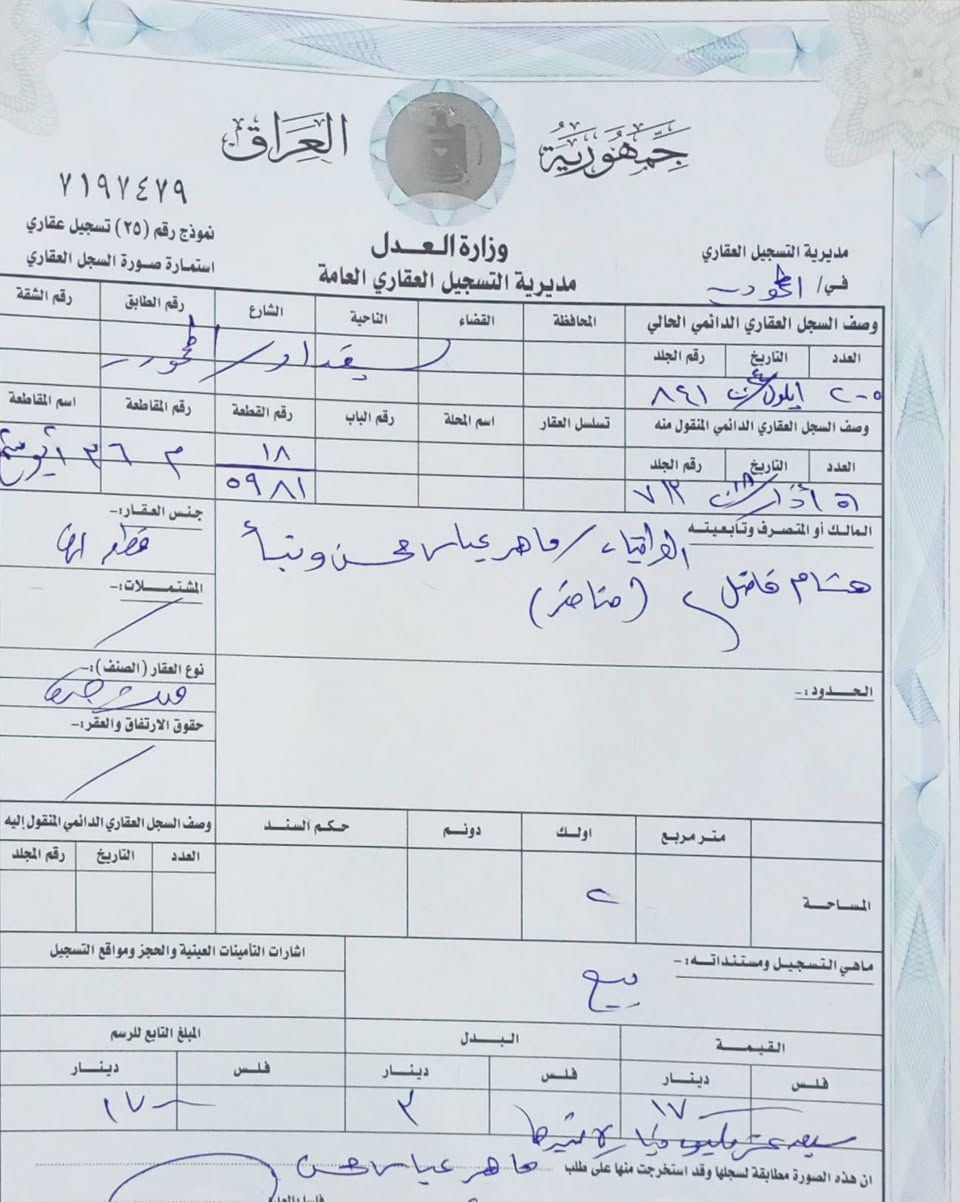 جمهورية العراق
٧١٩٧٤٧٩
نموذج رقم (٢٥) تسجيل عقاري
استمارة صورة السجل العقاري
وزارة العدل
مديرية التسجيل العقاري العامة
مديرية التسجيل العقاري
في/
وصف السجل العقاري الدائمي الحالي
المحافظة القضاء الناحية الشارع رقم الطابق رقم الشقة
العدد التاريخ رقم الجلد
بغداد
ايلول ٨٤١
وصف السجل العقاري الدائمي المنقول منه
تسلسل العقار اسم المحلة رقم الباب رقم القطعة رقم المقاطعة اسم المقاطعة
العدد التاريخ رقم الجلد
١٨
٥٩٨١
٥١ آذار ٧١٣
المالك أو المتصرف وتابعيته
ماهر عباس محسن ونبأ
هشام فاضل (مناصفة)
جنس العقار:-
المشتملات:-
نوع العقار (الصنف):-
حقوق الارتفاق والعقر:-
الحدود:-
متر مربع اولك دونم حكم السند وصف السجل العقاري الدائمي المنقول إليه
العدد التاريخ رقم المجلد
المساحة
٢
ماهي التسجيل ومستنداته:-
بيع
اشارات التأمينات العينية والحجز ومواقع التسجيل
القيمة البدل المبلغ التابع للرسم
فلس دينار فلس دينار فلس دينار
١٧ ٣ ١٧
سبعة عشر مليون دينار لا غيرها
ان هذه الصورة مطابقة لسجلها وقد استخرجت منها على طلب ماهر عباس محسن